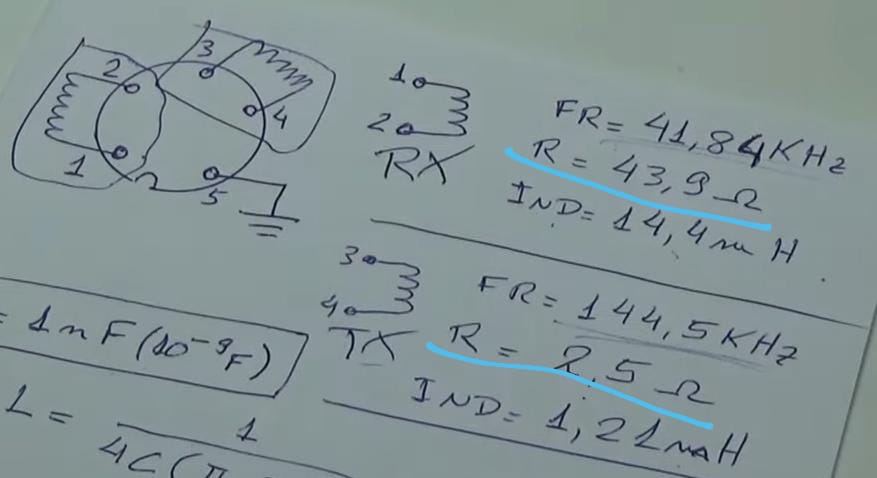 2
3
4
1
5
1
2
RX
FR = 41,84KHz
R = 43,9 Ω
IND = 14,4 mH
3
4
TX
FR = 144,5KHz
R = 2,5 Ω
IND = 1,21 mH
= 1nF (10⁻⁹F)
L = 1
4C(π